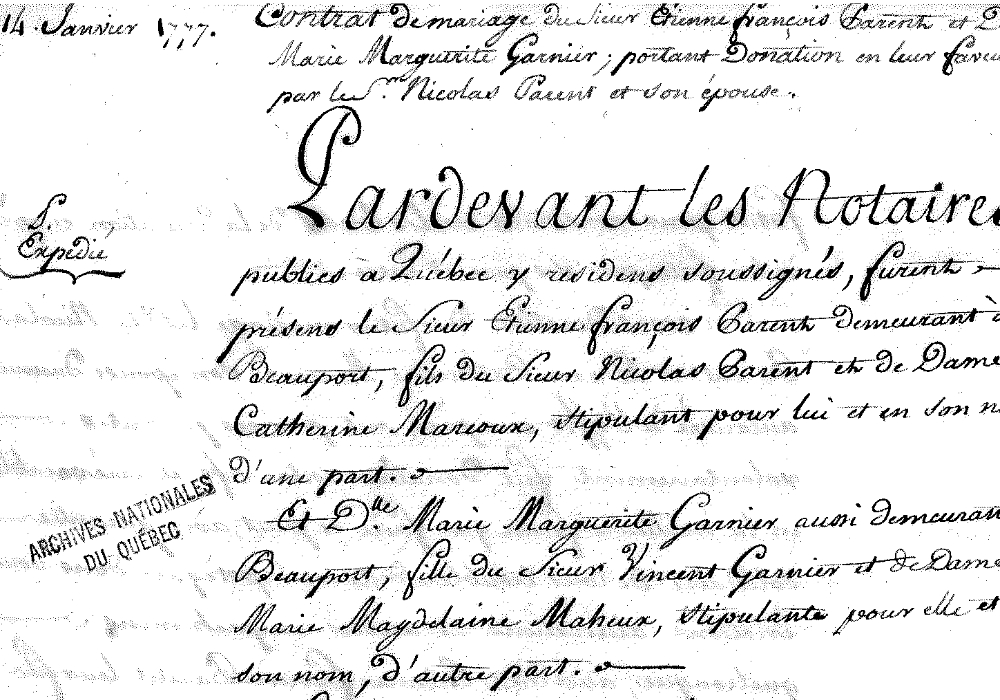 14 Janvier 1777.
Contrat de mariage du Sieur Etienne françois Parent et D
Marie Marguerite Garnier; portant Donation en leur faveu
par le S.r Nicolas Parent et son épouse.
Pardevant les Notaires
P.
Expédié
publics a Québec y residens soussignés, furent
présens le Sieur Etienne françois Parent demeurant à
Beauport, fils du Sieur Nicolas Parent et de Dame
Catherine Marcoux, stipulant pour lui et en son n
d'une part.
Et D.lle Marie Marguerite Garnier aussi demeuran
Beauport, fille du Sieur Vincent Garnier et de Dame
Marie Magdelaine Maheux, stipulante pour elle et
son nom, d'autre part.
ARCHIVES NATIONALES
DU QUÉBEC